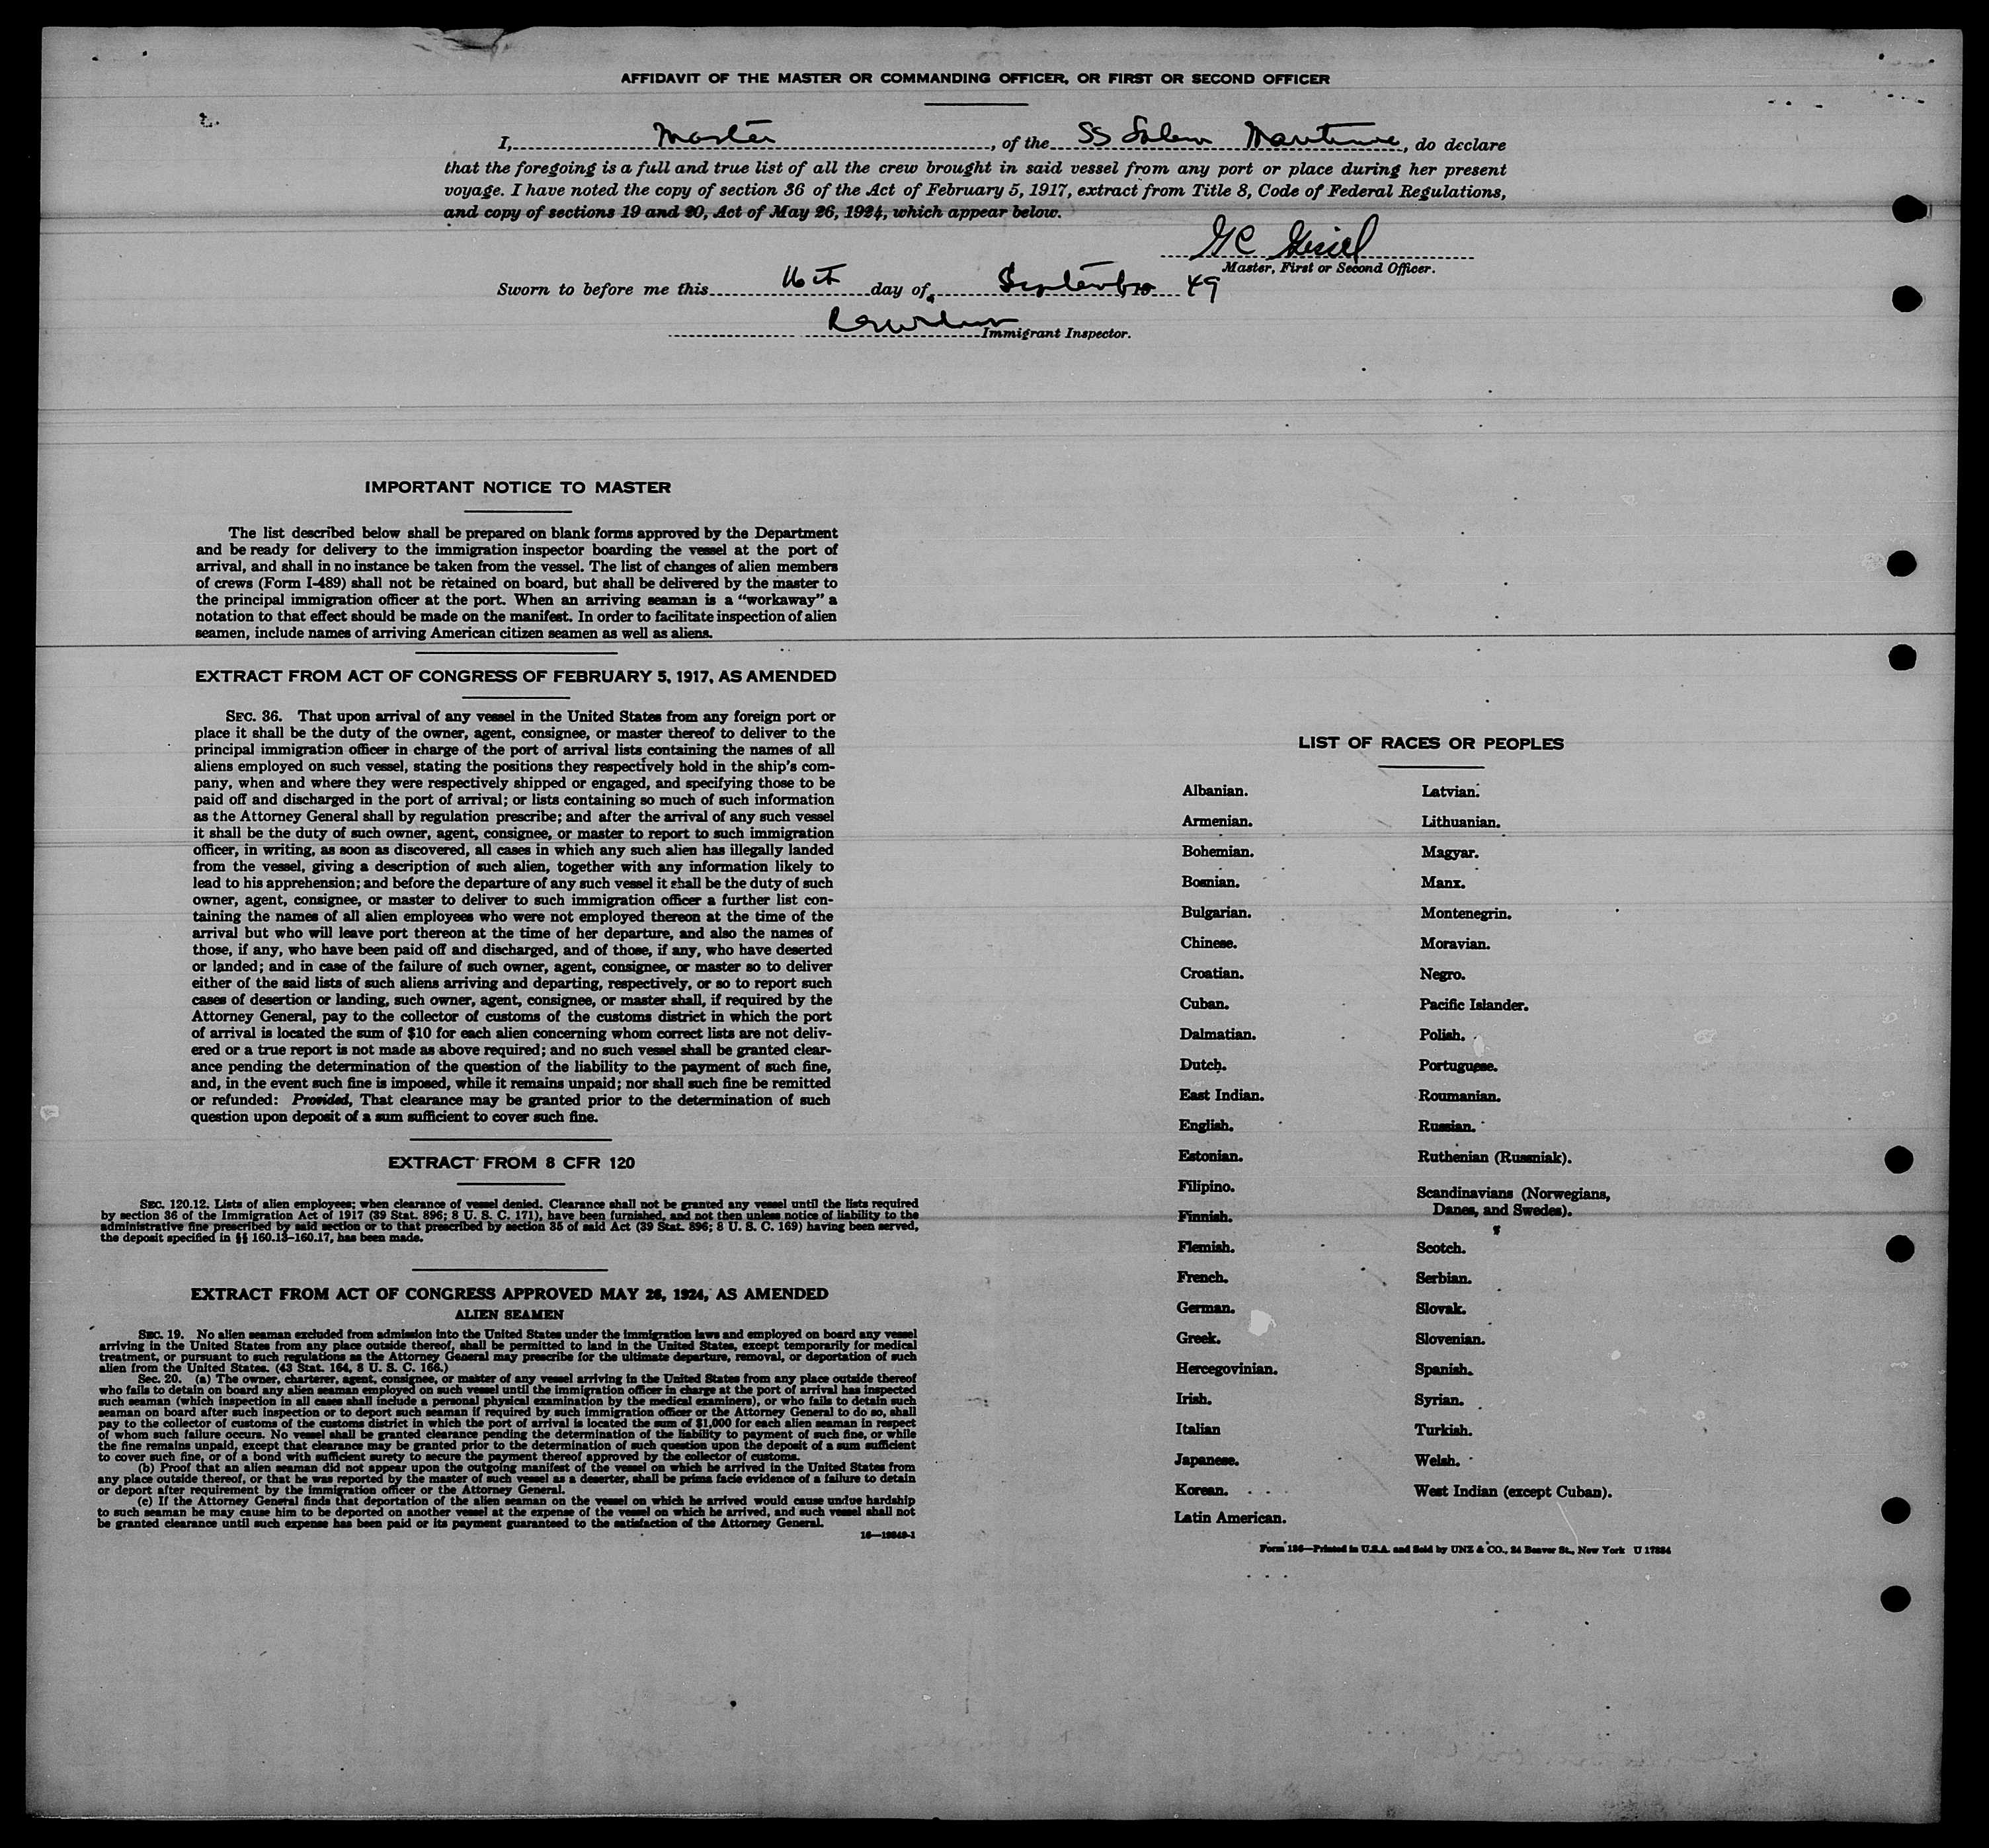 AFFIDAVIT OF THE MASTER OR COMMANDING OFFICER, OR FIRST OR SECOND OFFICER
I, Master, of the SS Salem Maritime, do declare
that the foregoing is a full and true list of all the crew brought in said vessel from any port or place during her present
voyage. I have noted the copy of section 36 of the Act of February 5, 1917, extract from Title 8, Code of Federal Regulations,
and copy of sections 19 and 20, Act of May 26, 1924, which appear below.
G C
Master, First or Second Officer.
Sworn to before me this 16th day of September, 19 49
Immigrant Inspector.
IMPORTANT NOTICE TO MASTER
The list described below shall be prepared on blank forms approved by the Department
and be ready for delivery to the immigration inspector boarding the vessel at the port of
arrival, and shall in no instance be taken from the vessel. The list of changes of alien members
of crews (Form I-489) shall not be retained on board, but shall be delivered by the master to
the principal immigration officer at the port. When an arriving seaman is a "workaway" a
notation to that effect should be made on the manifest. In order to facilitate inspection of alien
seamen, include names of arriving American citizen seamen as well as aliens.
EXTRACT FROM ACT OF CONGRESS OF FEBRUARY 5, 1917, AS AMENDED
SEC. 36. That upon arrival of any vessel in the United States from any foreign port or
place it shall be the duty of the owner, agent, consignee, or master thereof to deliver to the
principal immigration officer in charge of the port of arrival lists containing the names of all
aliens employed on such vessel, stating the positions they respectively hold in the ship's com-
pany, when and where they were respectively shipped or engaged, and specifying those to be
paid off and discharged in the port of arrival; or lists containing so much of such information
as the Attorney General shall by regulation prescribe; and after the arrival of any such vessel
it shall be the duty of such owner, agent, consignee, or master to report to such immigration
officer, in writing, as soon as discovered, all cases in which any such alien has illegally landed
from the vessel, giving a description of such alien, together with any information likely to
lead to his apprehension; and before the departure of any such vessel it shall be the duty of such
owner, agent, consignee, or master to deliver to such immigration officer a further list con-
taining the names of all alien employees who were not employed thereon at the time of the
arrival but who will leave port thereon at the time of her departure, and also the names of
those, if any, who have been paid off and discharged, and of those, if any, who have deserted
or landed; and in case of the failure of such owner, agent, consignee, or master so to deliver
either of the said lists of such aliens arriving and departing, respectively, or so to report such
cases of desertion or landing, such owner, agent, consignee, or master shall, if required by the
Attorney General, pay to the collector of customs of the customs district in which the port
of arrival is located the sum of $10 for each alien concerning whom correct lists are not deliv-
ered or a true report is not made as above required; and no such vessel shall be granted clear-
ance pending the determination of the question of the liability to the payment of such fine,
and, in the event such fine is imposed, while it remains unpaid; nor shall such fine be remitted
or refunded: Provided, That clearance may be granted prior to the determination of such
question upon deposit of a sum sufficient to cover such fine.
EXTRACT FROM 8 CFR 120
SEC. 120.12. Lists of alien employees; when clearance of vessel denied. Clearance shall not be granted any vessel until the lists required
by section 36 of the Immigration Act of 1917 (39 Stat. 896; 8 U. S. C. 171), have been furnished, and not then unless notice of liability to the
administrative fine prescribed by said section or to that prescribed by section 35 of said Act (39 Stat. 896; 8 U. S. C. 169) having been served,
the deposit specified in §§ 160.13-160.17, has been made.
EXTRACT FROM ACT OF CONGRESS APPROVED MAY 26, 1924, AS AMENDED
ALIEN SEAMEN
SEC. 19. No alien seaman excluded from admission into the United States under the immigration laws and employed on board any vessel
arriving in the United States from any place outside thereof, shall be permitted to land in the United States, except temporarily for medical
treatment, or pursuant to such regulations as the Attorney General may prescribe for the ultimate departure, removal, or deportation of such
alien from the United States. (43 Stat. 164, 8 U. S. C. 166.)
Sec. 20. (a) The owner, charterer, agent, consignee, or master of any vessel arriving in the United States from any place outside thereof
who fails to detain on board any alien seaman employed on such vessel until the immigration officer in charge at the port of arrival has inspected
such seaman (which inspection in all cases shall include a personal physical examination by the medical examiners), or who fails to detain such
seaman on board after such inspection or to deport such seaman if required by such immigration officer or the Attorney General to do so, shall
pay to the collector of customs of the customs district in which the port of arrival is located the sum of $1,000 for each alien seaman in respect
of whom such failure occurs. No vessel shall be granted clearance pending the determination of the liability to payment of such fine, or while
the fine remains unpaid, except that clearance may be granted prior to the determination of such question upon the deposit of a sum sufficient
to cover such fine, or of a bond with sufficient surety to secure the payment thereof approved by the collector of customs.
(b) Proof that an alien seaman did not appear upon the outgoing manifest of the vessel on which he arrived in the United States from
any place outside thereof, or that he was reported by the master of such vessel as a deserter, shall be prima facie evidence of a failure to detain
or deport after requirement by the immigration officer or the Attorney General.
(c) If the Attorney General finds that deportation of the alien seaman on the vessel on which he arrived would cause undue hardship
to such seaman he may cause him to be deported on another vessel at the expense of the vessel on which he arrived, and such vessel shall not
be granted clearance until such expense has been paid or its payment guaranteed to the satisfaction of the Attorney General.
LIST OF RACES OR PEOPLES
Albanian.
Armenian.
Bohemian.
Bosnian.
Bulgarian.
Chinese.
Croatian.
Cuban.
Dalmatian.
Dutch.
East Indian.
English.
Estonian.
Filipino.
Finnish.
Flemish.
French.
German.
Greek.
Hercegovinian.
Irish.
Italian
Japanese.
Korean.
Latin American.
Latvian.
Lithuanian.
Magyar.
Manx.
Montenegrin.
Moravian.
Negro.
Pacific Islander.
Polish.
Portuguese.
Roumanian.
Russian.
Ruthenian (Russniak).
Scandinavians (Norwegians,
Danes, and Swedes).
Scotch.
Serbian.
Slovak.
Slovenian.
Spanish.
Syrian.
Turkish.
Welsh.
West Indian (except Cuban).
Form 136—Printed in U.S.A. and Sold by UNZ & CO., 24 Beaver St., New York U 17384